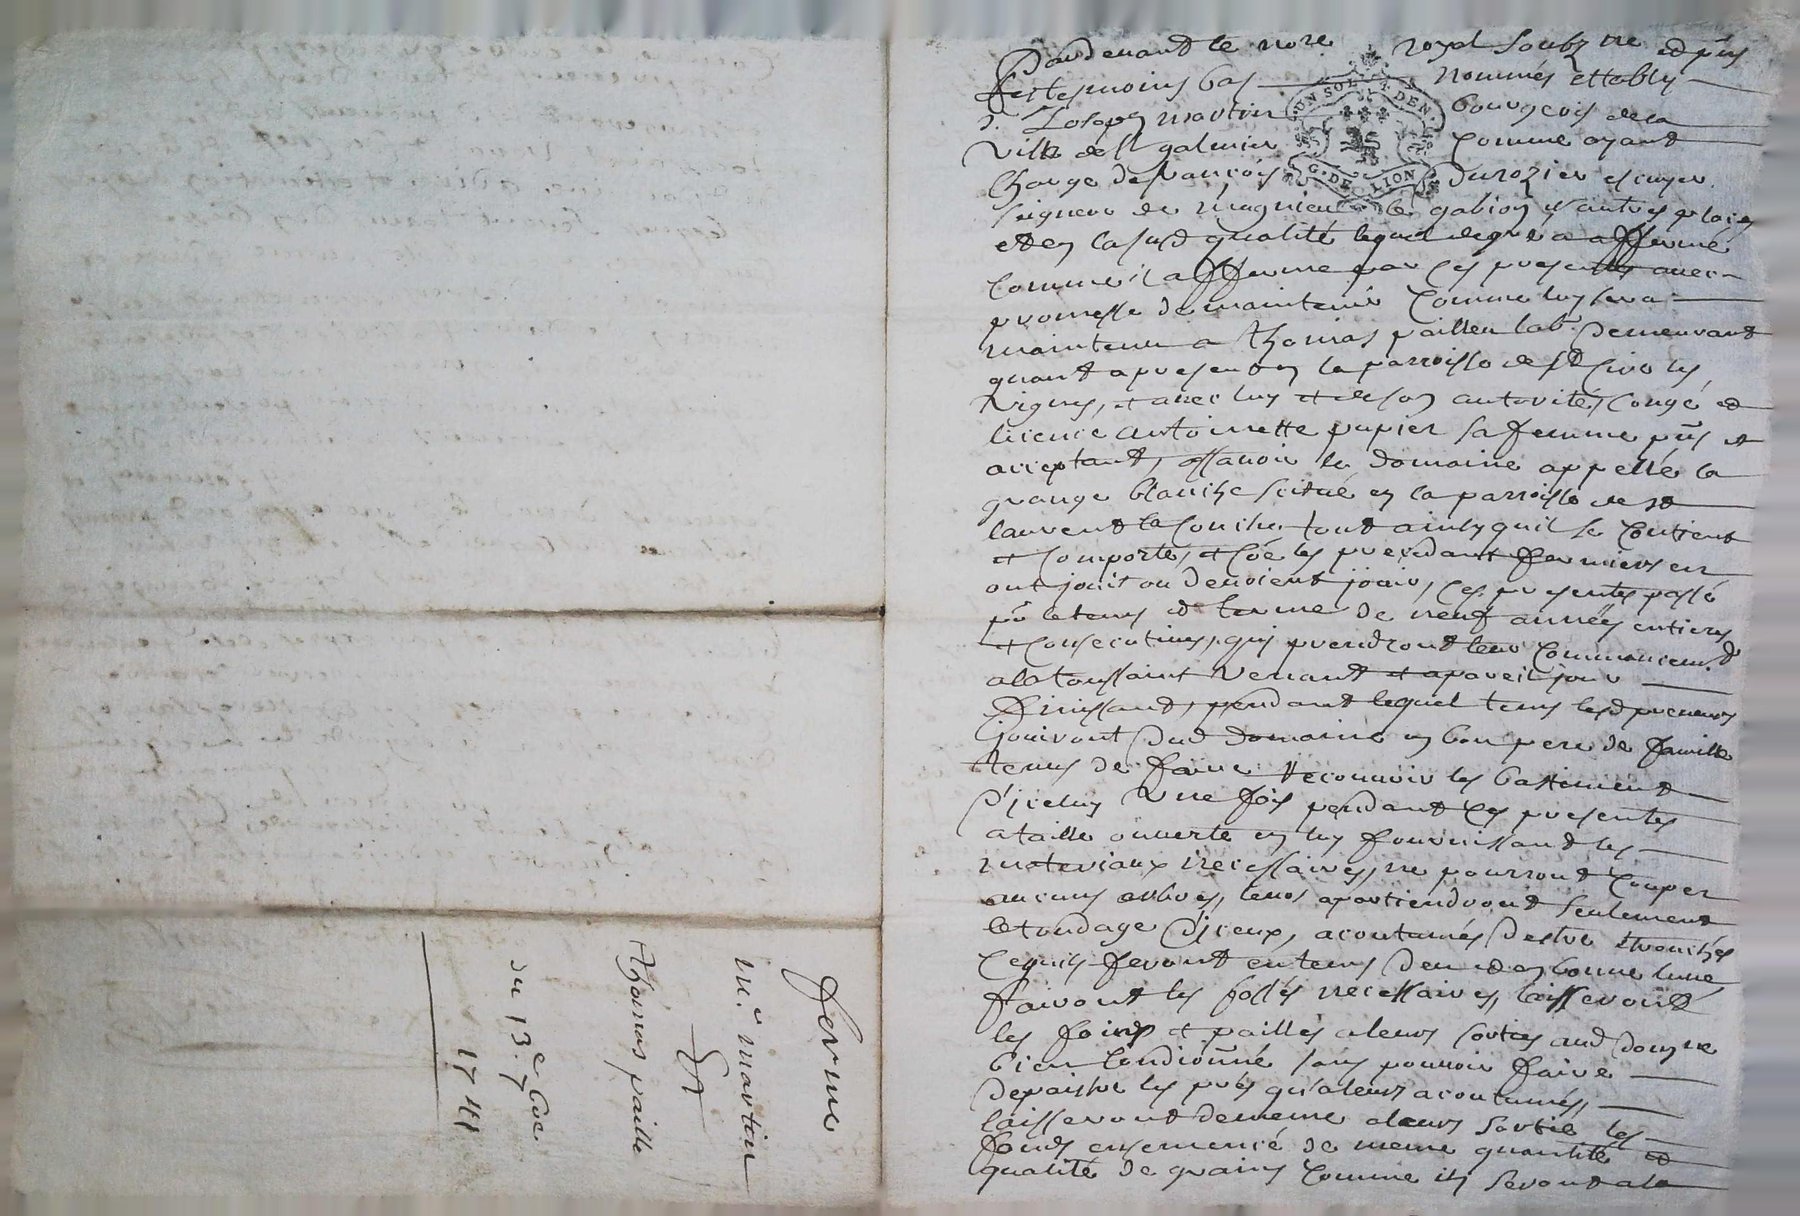 ferme
m.e martin
Et
Thomas paille
du 13.e 7bre
1741
Pardevant le no.re royal soubz.ne et p.ns
les temoins bas nommés etably
s. Joseph martin bourgeois de la
Ville de st galmier comme ayant
charge de françois durozier escuyer
seigneur de magnieu le gabion & autres places
et en lasusd qualité lequel de gré a affermé
comme il afferme par ces presentes avec
promesse de maintenir comme luy sera
maintenu a thomas paillen lab.r demeurant
quant a present en la parroisse de st Ciro les
Vignes, et avec luy et de son autorité, congé et
licence antoinette papier sa femme p.ns et
acceptant, assavoir le domaine appellé la
grange blanche scitué en la parroisse de st
laurent la conche tout ainsy quil se contient
et comporte, et coe les precedant fermiers en
ont jouit ou devoient jouir, ces presentes passé
pr le tems et terme de neuf années entieres
et consecutives, qui prendront leur commancem.t
a la toussaint venant et a pareil jour
finissant, pendant lequel tems lesd preneurs
jouiront dud domaine en bon pere de famille
tenus de faire recouvrir les bastiment
d'jceluy Une fois pendant ces presentes
a taille ouverte en luy fournissant les
materiaux necessaires, ne pourront couper
aucuns arbres, leurs apartiendront seulement
le tondage d'jceux, acoutumés destre tronchés
ce quils feront en tems deu et en bonne lune,
fairont les fossés necessaires, laisseront
les foins et pailles a leurs sorties aud domaine
bien condionné sans pouvoir faire
depaistre les prés qu'a leurs acoutumés,
laisseront de meme a leurs sortie les
fonds ensemencé de meme quantité et
qualité de grains comme ils seront a la
UN SOL 4 DEN.
G. DE LION